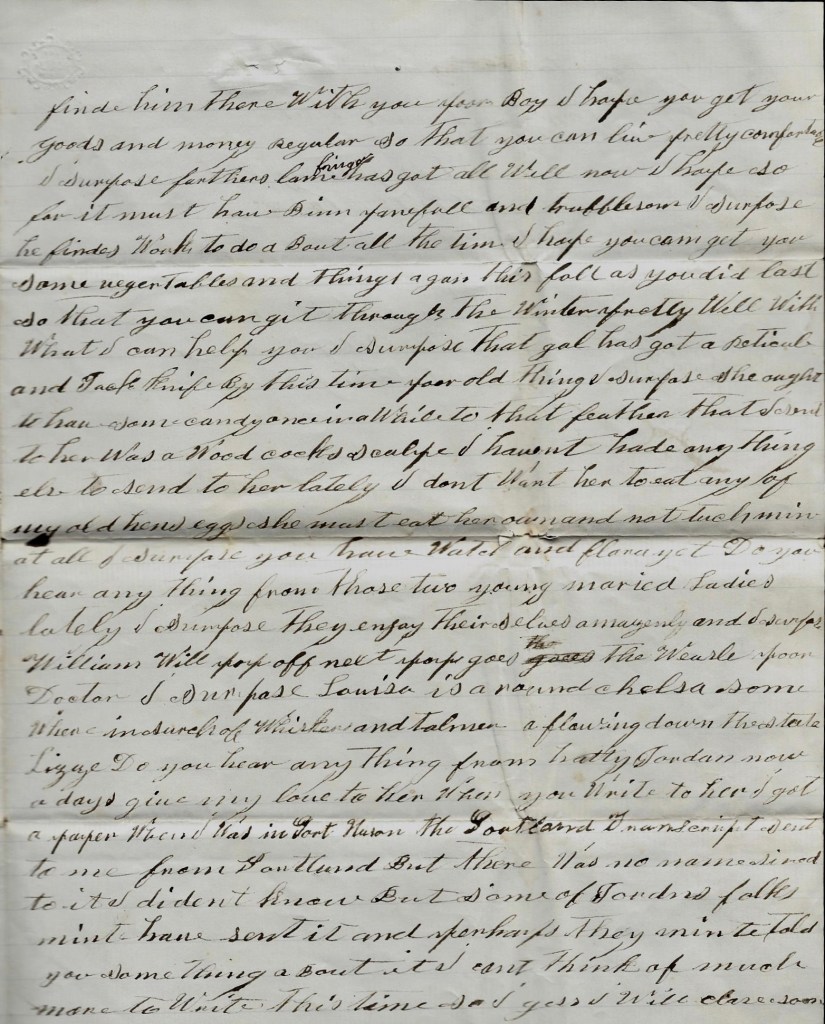 finde him there With you poor Boy I hope you get your
goods and money regular so that you can liv pretty comfortable
I surpose farthers lame finger has got all Well now I hope so
for it must hav Binn painfull and trubblesom I surpose
he findes Work to do a Bout all the tim I hope you can get you
some vegertables and things agan this fall as you did last
so that you can git through the Winter pretty Well With
What I can help you I surpose that gal has got a reticule
and Jack knife By this time poor old thing I surpose she ought
to hav some candy once in a While to that feather that I send
to her Was a Wood cocks scalpe I havent hade any thing
els to send to her lately I dont Want her to eat any of
my old hens eggs she must eat her own and not tuch min
at all I surpose you hav Water and flora yet Do you
hear any thing from those two young maried Ladies
lately I surpose they enjoy theirselves amazenly and I surpos
William Will pop off next pop goes the goees the Weasle poor
Doctor I surpose Louisa is a round chelsa some
Where in surch of Whisker and talmer a flowing down the state
Lizzye Do you hear any thing from hatty Jordan now
a days give my love to her When you Write to her I got
a paper When I Was in Fort Huron the Portland Transcript sent
to me from Portland But there Was no name sined
to it I dident know But som of Jordns folks
mint hav sent it and perhaps they min te told
you some thing a Bout it I cant think of much
more to Write this time so I gess I Will close soon